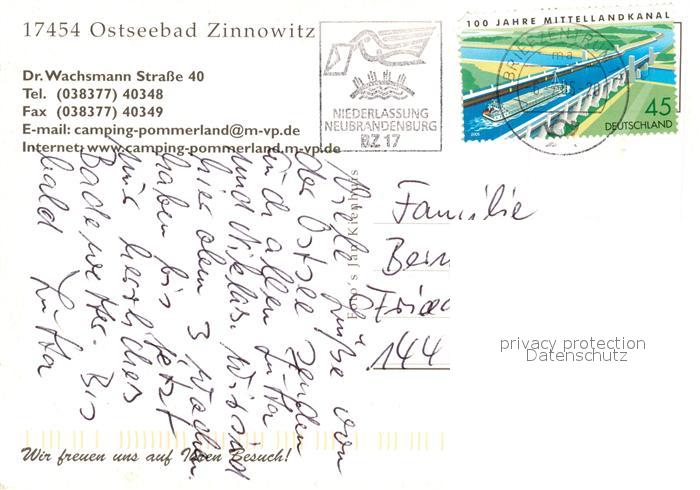 17454 Ostseebad Zinnowitz
Dr. Wachsmann Straße 40
Tel. (038377) 40348
Fax (038377) 40349
E-mail: camping-pommerland@m-vp.de
Internet: www.camping-pommerland.m-vp.de
NIEDERLASSUNG
NEUBRANDENBURG
BZ 17
BRIEFZENTRUM
ma
100 JAHRE MITTELLANDKANAL
45
DEUTSCHLAND
Viele Grüße von
der Ostsee senden
Euch allen Jutta
und Niklas. Wir sind
hier oben 3 Wochen.
haben bis jetzt
nur herrliches
Badewetter. Bis
bald Jutta
Familie
Bern
Fried
144
privacy protection
Datenschutz
Wir freuen uns auf Ihren Besuch!